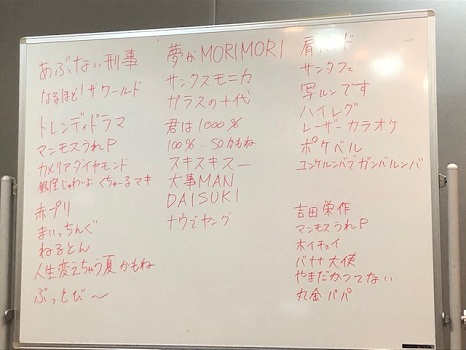 あぶない刑事
なるほど!ザワールド
トレンディドラマ
マンモスうれP
カメリアダイヤモンド
じゅわいよ くちゅーる マキ
赤プリ
まいっちんぐ
ねるとん
人生変えちゃう夏かもね
ぶっとび〜
夢がMORIMORI
サンクスモニカ
ガラスの十代
君は1000%
100%…SOかもね
スキスキスー
大事MAN
DAISUKI
ナウでヤング
肩
サンタフェ
写ルンです
ハイレグ
レーザーカラオケ
ポケベル
ユンケルンバでガンバルンバ
吉田栄作
マンモスうれP
ホイチョイ
バナナ大使
やまだかつてない
丸金パパ